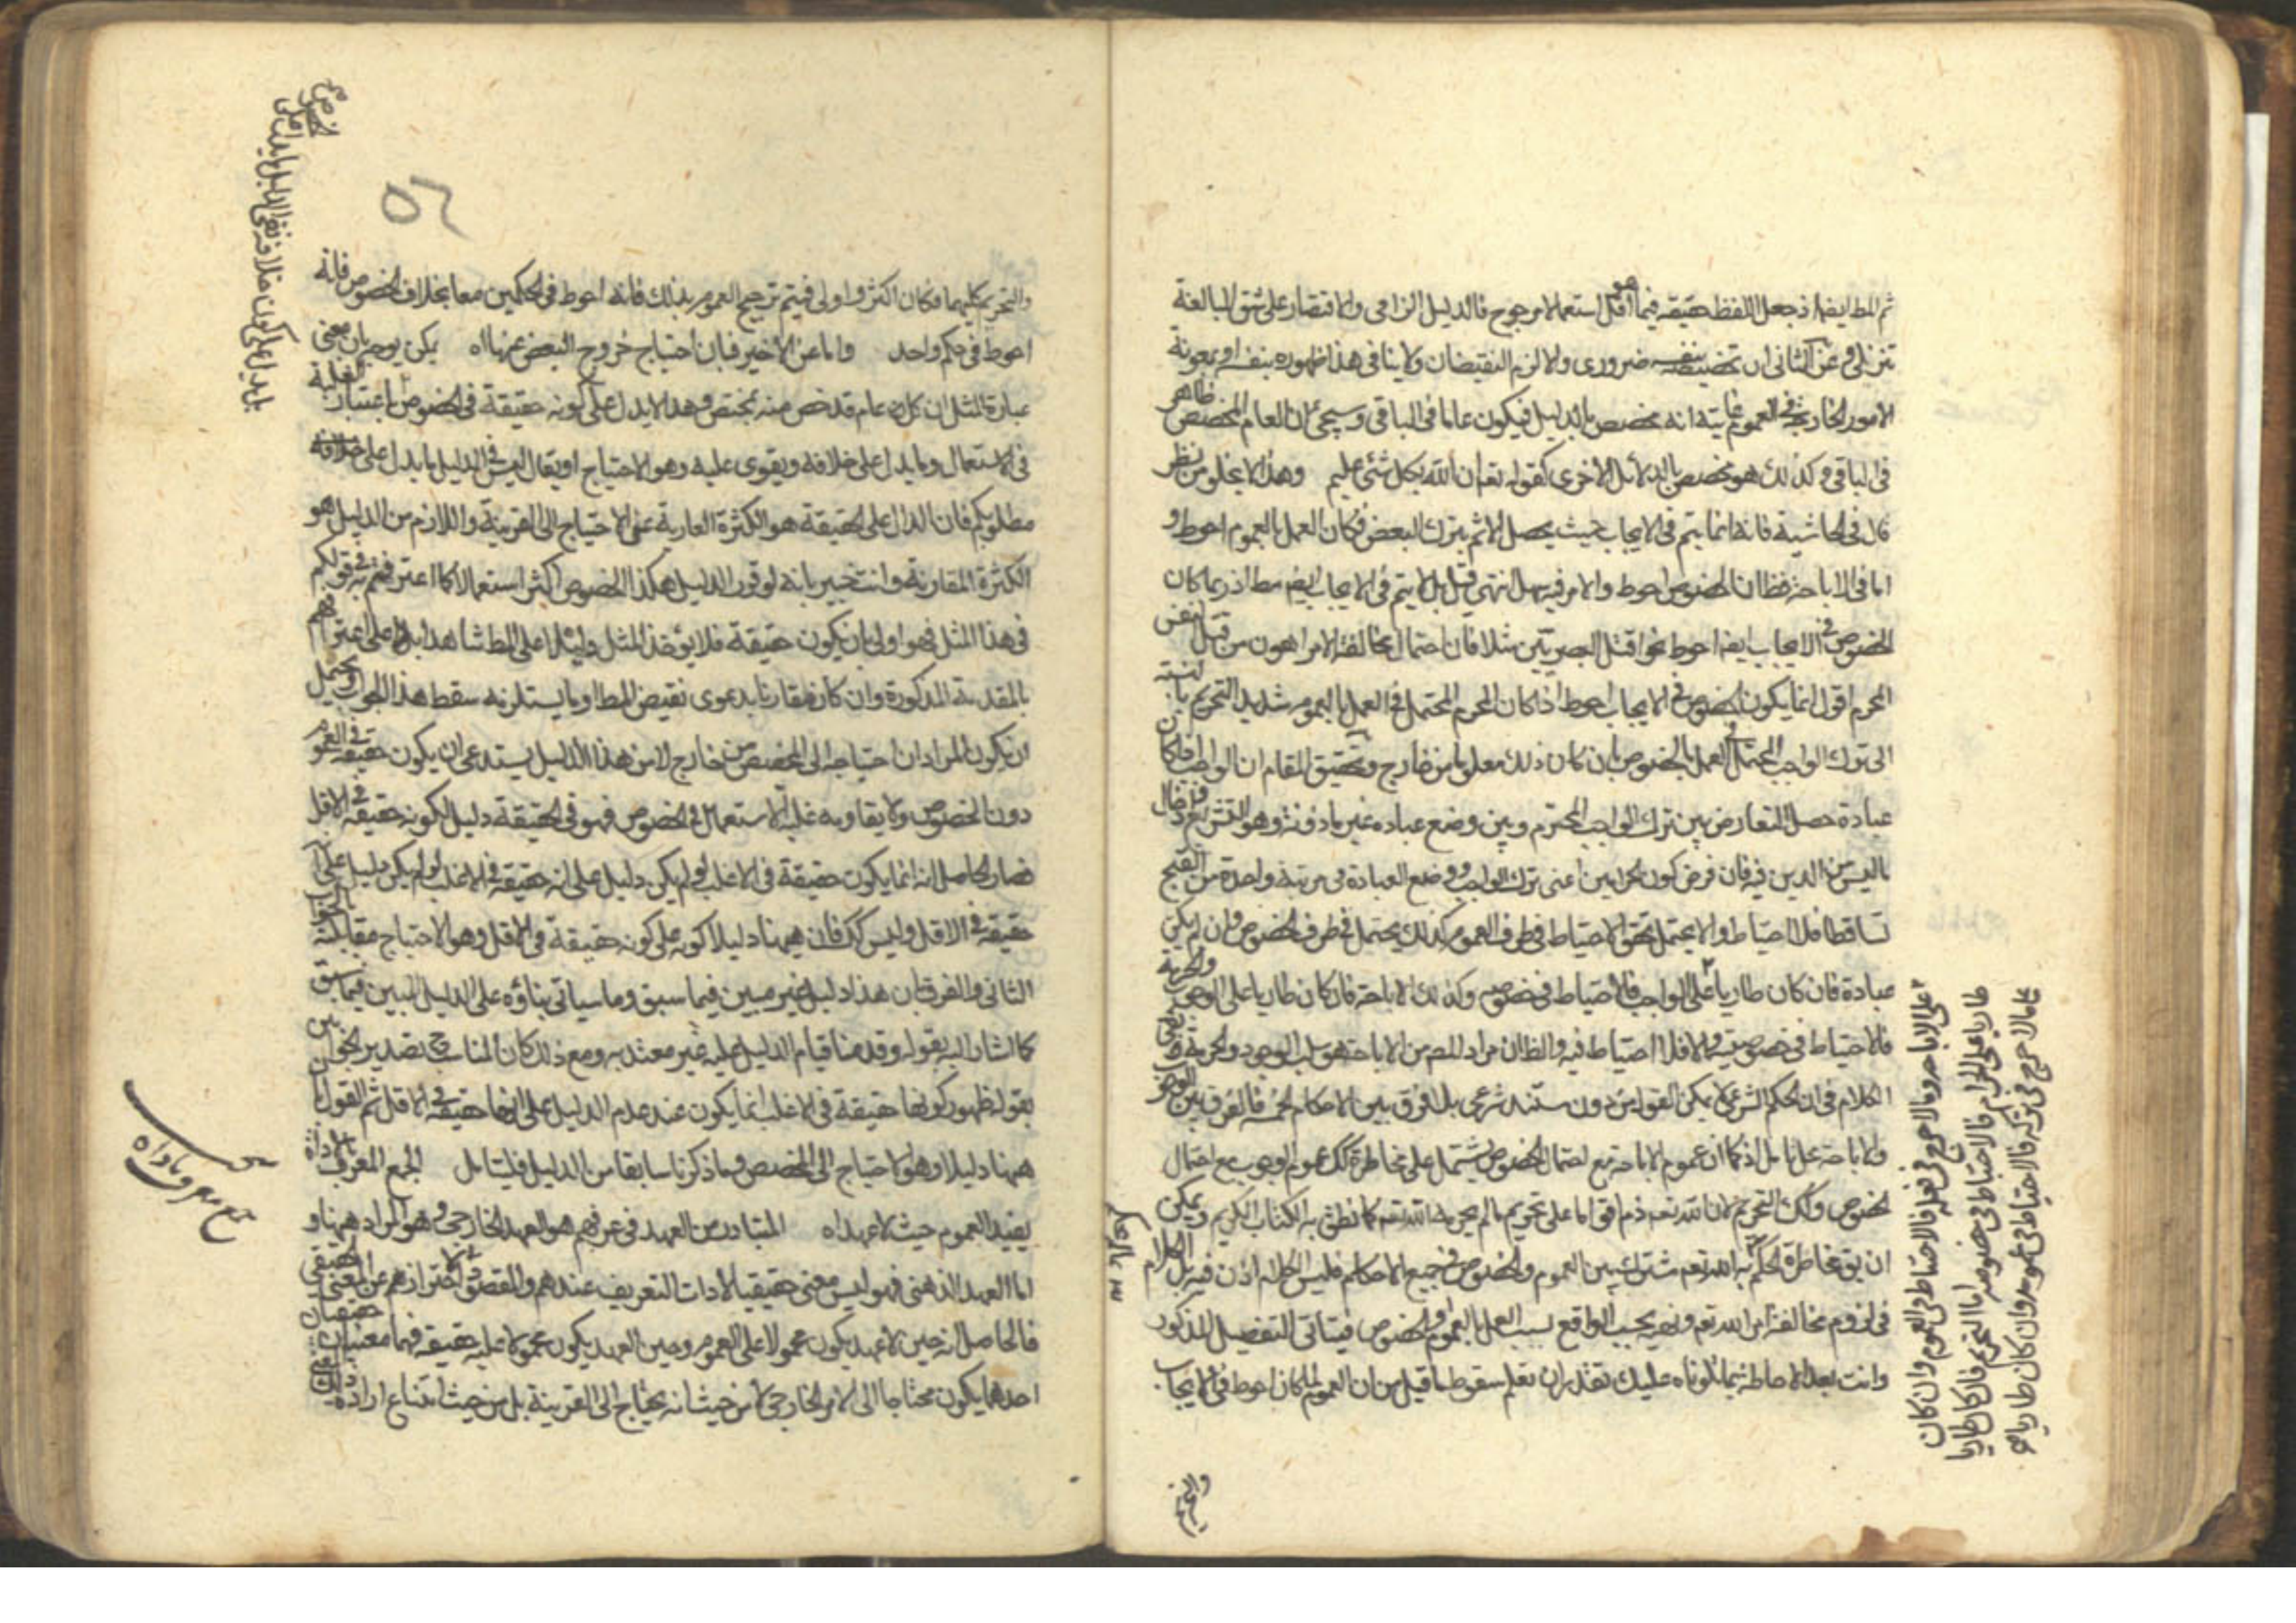 ثم المط ايضا اذ جعل اللفظ حقيقة فيما هو اقل استعمالا مرجوح فالدليل الزامى والاقتصار على شق المبالغة
تنزلى وعن الثانى ان تخصيصه بنفسه ضرورى والا لزم النقيضان ولا ينافى هذا ظهوره بنفسه او بمعونة
الامور الخارجة فى العموم غايته انه مخصص بالدليل فيكون عاما فى الباقى وسيجئ ان العام المخصص ظاهر
فى الباقى وكذلك هو مخصص بالدلائل الاخرى كقوله تعم ان الله بكل شئ عليم وهذا لا يخلو من نظر
قال فى الحاشية فانه انما يتم فى الايجاب حيث يحصل الاثم بترك البعض فكان العمل بالعموم احوط و
اما فى الاباحة فظ ان الخصوص احوط والامر فيه سهل انتهى قيل بل لا يتم فى الايجاب ايضا مط اذ ربما كان
الخصوص فى الايجاب ايضا احوط نحو اقتل البصريين مثلا فان احتمال مخالفة الامر اهون من قتل النفس
المحرم اقول انما يكون الخصوص فى الايجاب احوط اذا كان المحرم المحتمل فى العمل بالعموم شديد التحريم بالنسبة
الى ترك الواجب المحتمل فى العمل بالخصوص بان كان ذلك معلوما من خارج وتحقيق المقام ان الواجب ان كان
عبادة حصل التعارض بين ترك الواجب المحترم وبين وضع عبادة غير ماذونة وهو التشريع وادخال
ما ليس من الدين فيه فان فرض كون الحرامين اعنى ترك الواجب ووضع العبادة فى مرتبة واحدة من القبح
تساقطا فلا احتياط والا يحتمل تحقق الاحتياط فى طرف العموم كذلك يحتمل فى طرف الخصوص وان لم يكن
عبادة فان كان طاريا على الواجب فالاحتياط فى خصوصه وكذلك الاباحة فان كان طاريا على الوجوب والحرمة
فالاحتياط فى خصوصيته والا فلا احتياط فيه والظ ان مراد المص من الاباحة هو سلب الوجوب والحرمة
الكلام فى ان الحكم الشرعى لا يمكن القول به من دون مستند شرعى بلا فرق بين الاحكام الخمسة فالفرق بين الوجوب
والاباحة محل تامل اذ كما ان عموم الاباحة مع احتمال الخصوص يشتمل على مخاطرة كك عموم الوجوب مع احتمال
الخصوص وكك التحريم لان الله تعم ذم اقواما على تحريم ما لم يحرمه الله تعم كما نطق به الكتاب الكريم ويمكن
ان يق مخاطرة الحكم به الله تعم مشترك بين العموم والخصوص فى جميع الاحكام فليس الكلام اذن فيه بل الكلام
فى لزوم مخالفة امر الله تعم ونهيه بحسب الواقع بسبب العمل بالعموم والخصوص فيتأتى التفصيل المذكور
وانت بعد الاحاطة بما تلوناه عليك تقدر ان تعلم سقوط ما قيل من ان العموم لما كان احوط فى الايجاب
والتحريم
على الاباحة وما لا حرج فى فعله فالاحتياط فى العموم وان كان
طاريا على الحرام فالاحتياط فى خصوصه اما التحريم فان كان طاريا
على ما لا حرج فى تركه فالاحتياط فى عمومه وان كان طاريا
٥٦
والتحريم كليهما فكان اكثر واولى فيتم ترجيح العموم بذلك فانه احوط فى الحكمين معا بخلاف الخصوص فانه
احوط فى حكم واحد واما عن الاخير فبان احتياج خروج البعض عنها اه يمكن توجيهه بان معنى
عبارة المثل ان كل عام قد خص منه مخصص وهذا لا يدل على كونه حقيقة فى الخصوص باعتبار الغلبة
فى الاستعمال وما يدل على خلافه ويقوى عليه وهو الاحتياج او يقال ليس فى الدليل ما يدل على خلافه
مطلوبكم فان الدال على الحقيقة هو الكثرة العارية عن الاحتياج الى القرينة واللازم من الدليل هو
الكثرة المقارنة وانت خبير بانه لو قرر الدليل هكذا الخصوص اكثر استعمالا كما اعترفتم به فى قولكم
فى هذا المثل فهو اولى بان يكون حقيقة فلا يؤخذ المثل دليلا على المط شاهدا بل على اعترافهم
بالمقدمة المذكورة وان كان مقارنا بدعوى نقيض المط او ما يستلزمه سقط هذا الجواب ويحتمل
ان يكون المراد ان احتياجه الى المخصص من خارج لا من هذا الدليل يستدعى ان يكون حقيقة فى العموم
دون الخصوص ولا يقاومه غلبة الاستعمال فى الخصوص فهو فى الحقيقة دليل لكونه حقيقة فى الاقل
فصار الحاصل انه انما يكون حقيقة فى الاغلب لو لم يكن دليل على انه حقيقة فى الاغلب لو لم يكن دليل على
حقيقة فى الاقل وليس كك فان ههنا دليلا كونه على كونه حقيقة فى الاقل وهو الاحتياج مقابلة
الثانى والفرق ان هذا دليل غير مبين فيما سبق وما سياتى بناؤه على الدليل المبين فيما سبق
كما اشار اليه بقوله وقد مناقيام الدليل عليه غير معتد به ومع ذلك كان المناسب ح تصدير الجواب
بقوله ظهور كونها حقيقة فى الاغلب انما يكون عند عدم الدليل على انها حقيقة فى الاقل ثم القول بان
ههنا دليلا وهو الاحتياج الى المخصص وما ذكرنا سابقا من الدليل فليتامل الجمع المعرف بالاداة
يفيد العموم حيث لا عهد اه المتبادر من العهد فى عرفهم هو العهد الخارجى وهو المراد ههنا و
اما العهد الذهنى فهو ليس معنى حقيقيا لادات التعريف عندهم والمقصود احترازهم عن المعنى الحقيقى
فالحاصل انه حين لا عهد يكون محمولا على العموم وحين العهد يكون محمولا عليه حقيقة فهما معنيان حقيقيان
احدهما يكون محتاجا الى الامر الخارجى لا من حيث انه يحتاج الى القرينة بل من حيث امتناع ارادة